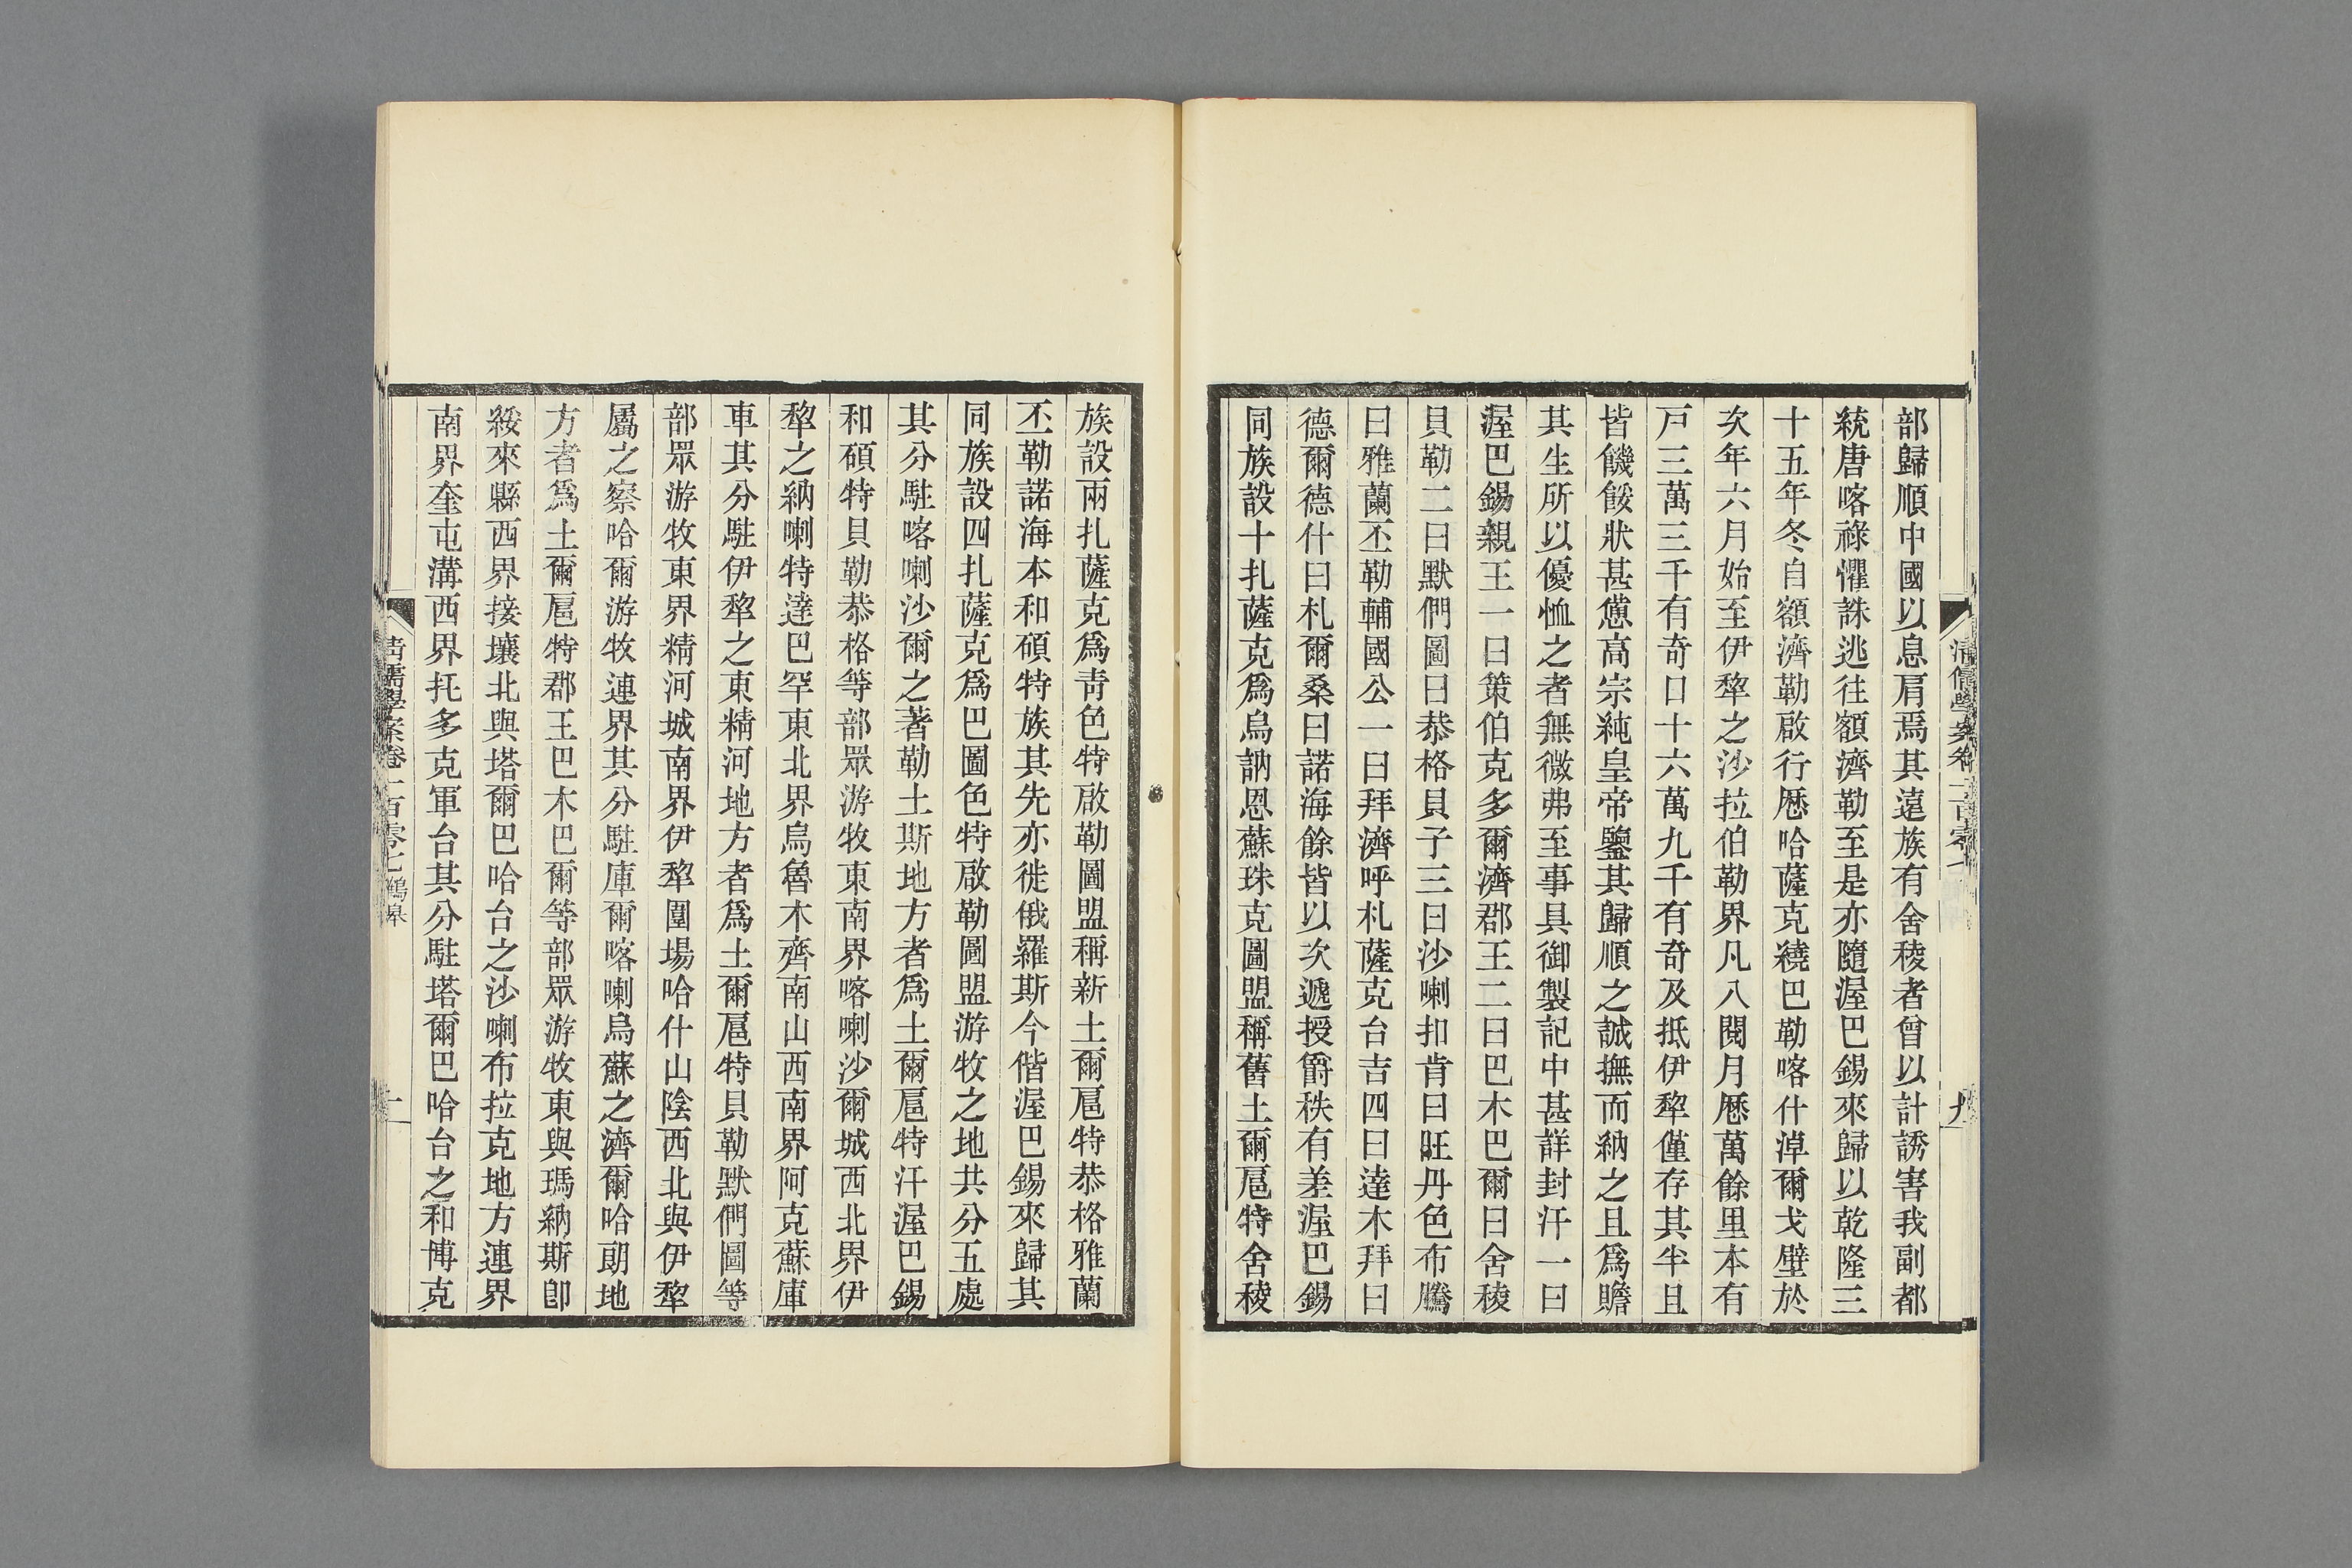 部歸順中國以息肩焉其遠族有舍稜者曾以計誘害我副都
統唐喀祿懼誅逃往額濟勒至是亦隨渥巴錫來歸以乾隆三
十五年冬自額濟勒啟行歷哈薩克繞巴勒喀什淖爾戈壁於
次年六月始至伊犂之沙拉伯勒界凡八閱月歷萬餘里本有
戸三萬三千有奇口十六萬九千有奇及抵伊犂僅存其半且
皆饑餒狀甚憊高宗純皇帝鑒其歸順之誠撫而納之且爲贍
其生所以優恤之者無微弗至事具御製記中甚詳封汗一曰
渥巴錫親王一曰策伯克多爾濟郡王二曰巴木巴爾曰舍稜
貝勒二曰默們圖曰恭格貝子三曰沙喇扣肯曰旺丹色布騰
曰雅蘭丕勒輔國公一曰拜濟呼札薩克台吉四曰達木拜曰
德爾德什曰札爾桑曰諾海餘皆以次遞授爵秩有差渥巴錫
同族設十扎薩克爲烏訥恩蘇珠克圖盟稱舊土爾扈特舍稜
族設兩扎薩克爲青色特啟勒圖盟稱新土爾扈特恭格雅蘭
丕勒諾海本和碩特族其先亦徙俄羅斯今偕渥巴錫來歸其
同族設四扎薩克爲巴圖色特啟勒圖盟游牧之地共分五處
其分駐喀喇沙爾之著勒土斯地方者爲土爾扈特汗渥巴錫
和碩特貝勒恭格等部眾游牧東南界喀喇沙爾城西北界伊
犂之納喇特達巴罕東北界烏魯木齊南山西南界阿克蘇庫
車其分駐伊犂之東精河地方者爲土爾扈特貝勒默們圖等
部眾游牧東界精河城南界伊犂圍場哈什山陰西北與伊犂
屬之察哈爾游牧連界其分駐庫爾喀喇烏蘇之濟爾哈朗地
方者爲土爾扈特郡王巴木巴爾等部眾游牧東與瑪納斯卽
綏來縣西界接壤北與塔爾巴哈台之沙喇布拉克地方連界
南界奎屯溝西界托多克軍台其分駐塔爾巴哈台之和博克
清儒學案卷一百零七 鶴皋